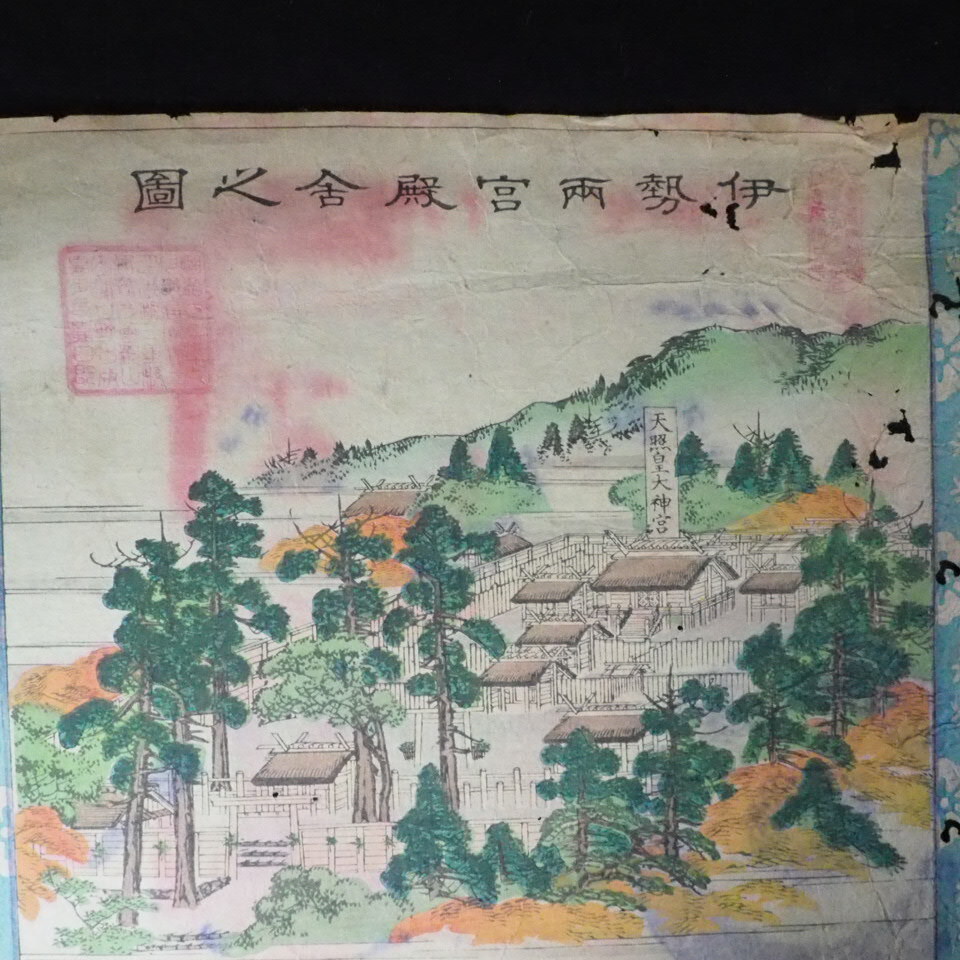 伊勢兩宮殿舎之圖
天照皇大神宮